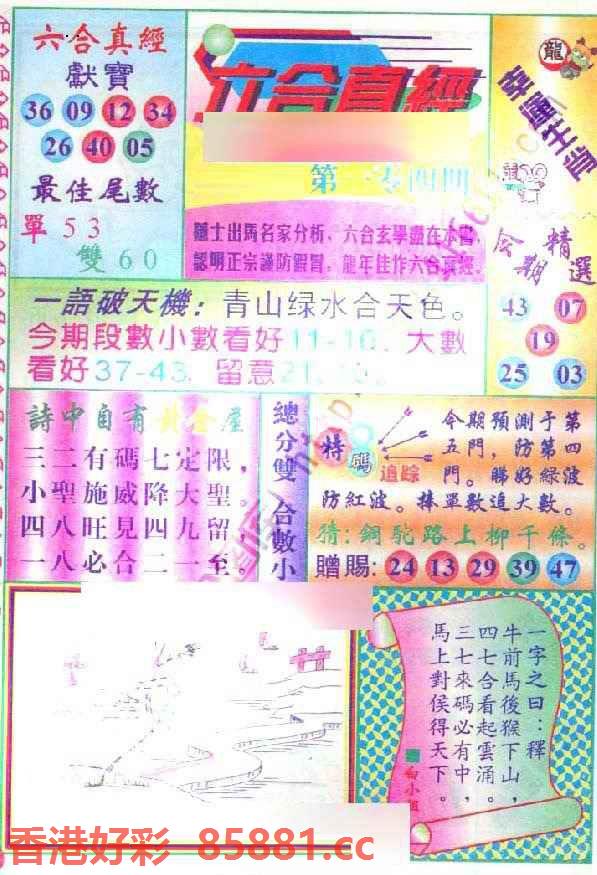 六合真經
獻寶
36 09 12 34
26 40 05
最佳尾數
單 5 3
雙 6 0
六合真經
第一零四期
龍
幸運生肖
龍
今期精選
43 07
19
25 03
認明正宗謹防假冒，龍年佳作六合真經。
一語破天機：青山绿水合天色。
今期段數小數看好11-16、大數
看好37-43、留意
詩中自有黃金屋
三二有碼七定限，
小聖施威降大聖。
四八旺見四九留，
一八必合二一至。
總分雙 合數小
特碼追踪
今期預測于第
五門，防第四
門。睇好綠波
防紅波。捧單數追大數。
猜：銅駝路上柳千條。
贈賜：24 13 29 39 47
一字之曰：釋
牛前馬後猴下山，
四七合看起雲涌。
三七來碼必有中，
馬上對侯得天下。
香港好彩 85881.cc